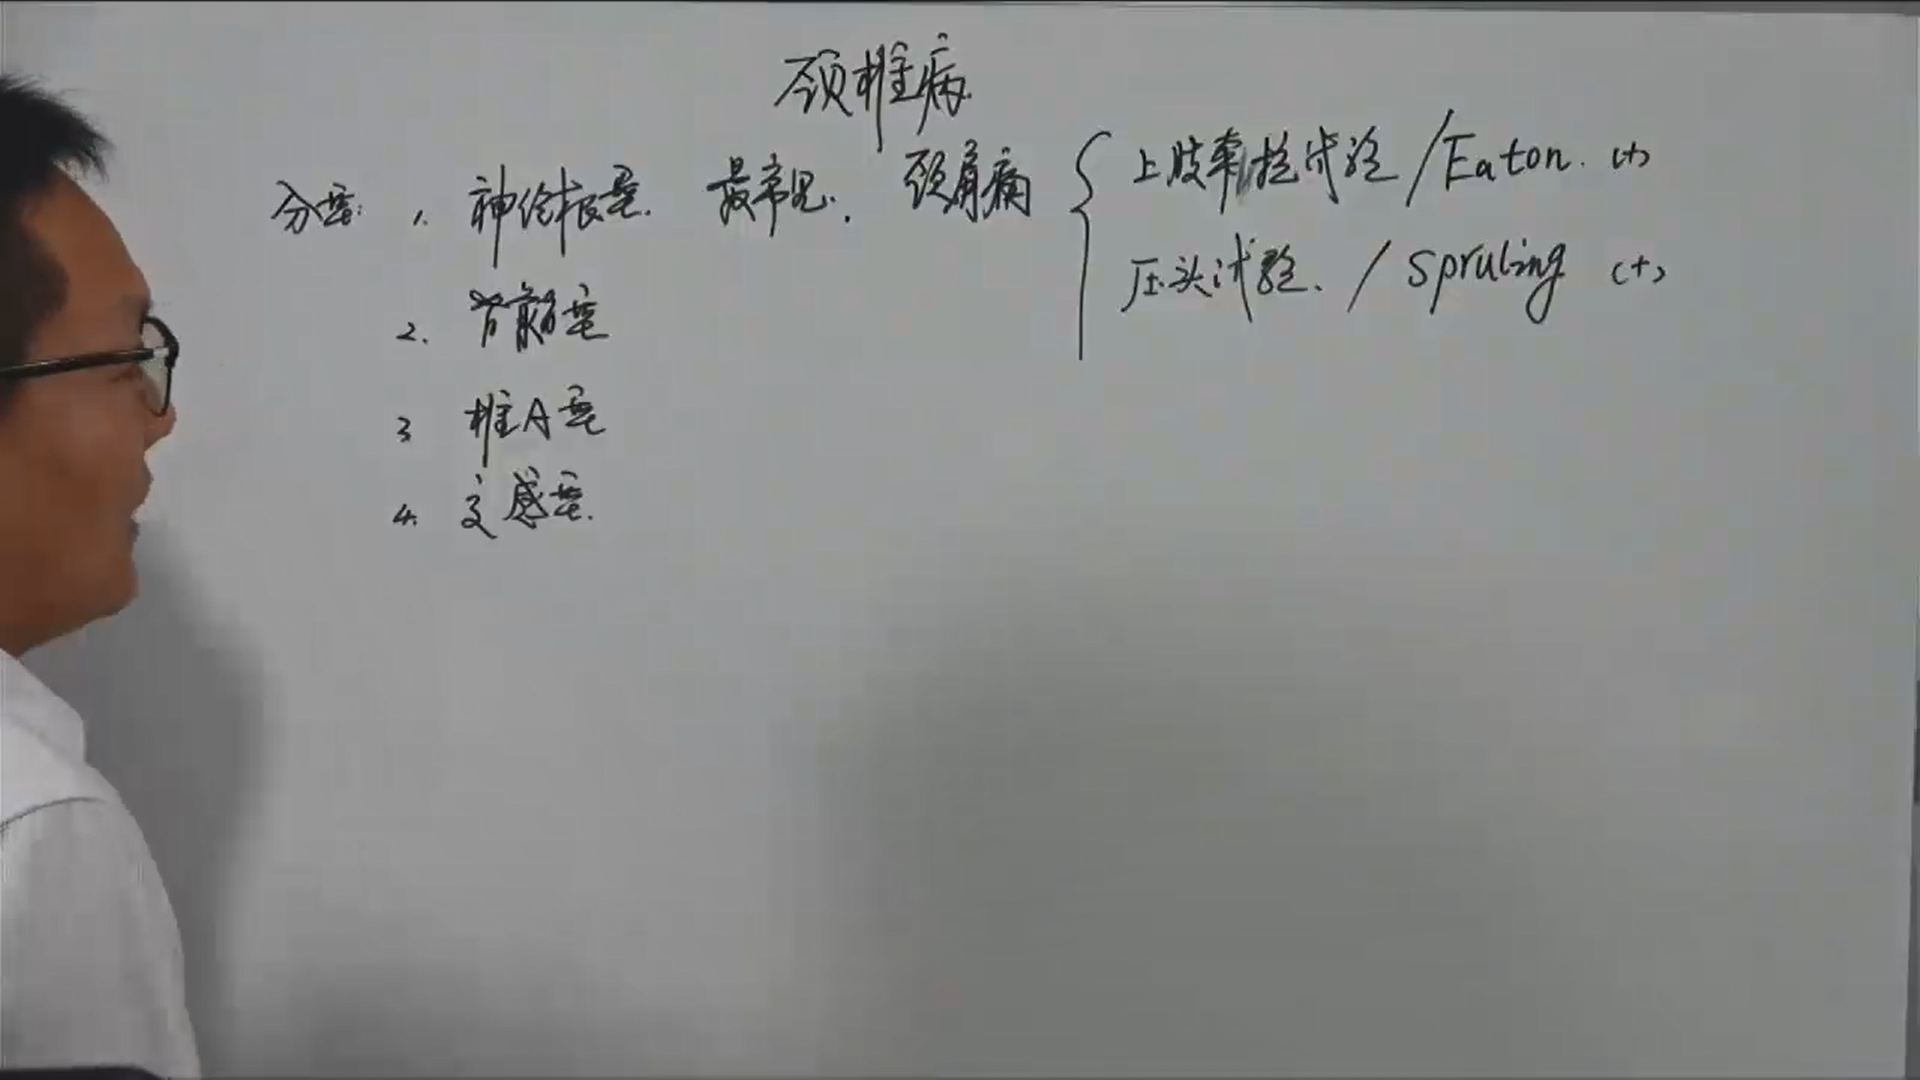 颈椎病
分型: 1. 神经根型. 最常见. 颈肩痛 { 上肢牵拉试验 / Eaton. (+)
压头试验. / Spruling (+)
2. 脊髓型
3 椎A型
4. 交感型.